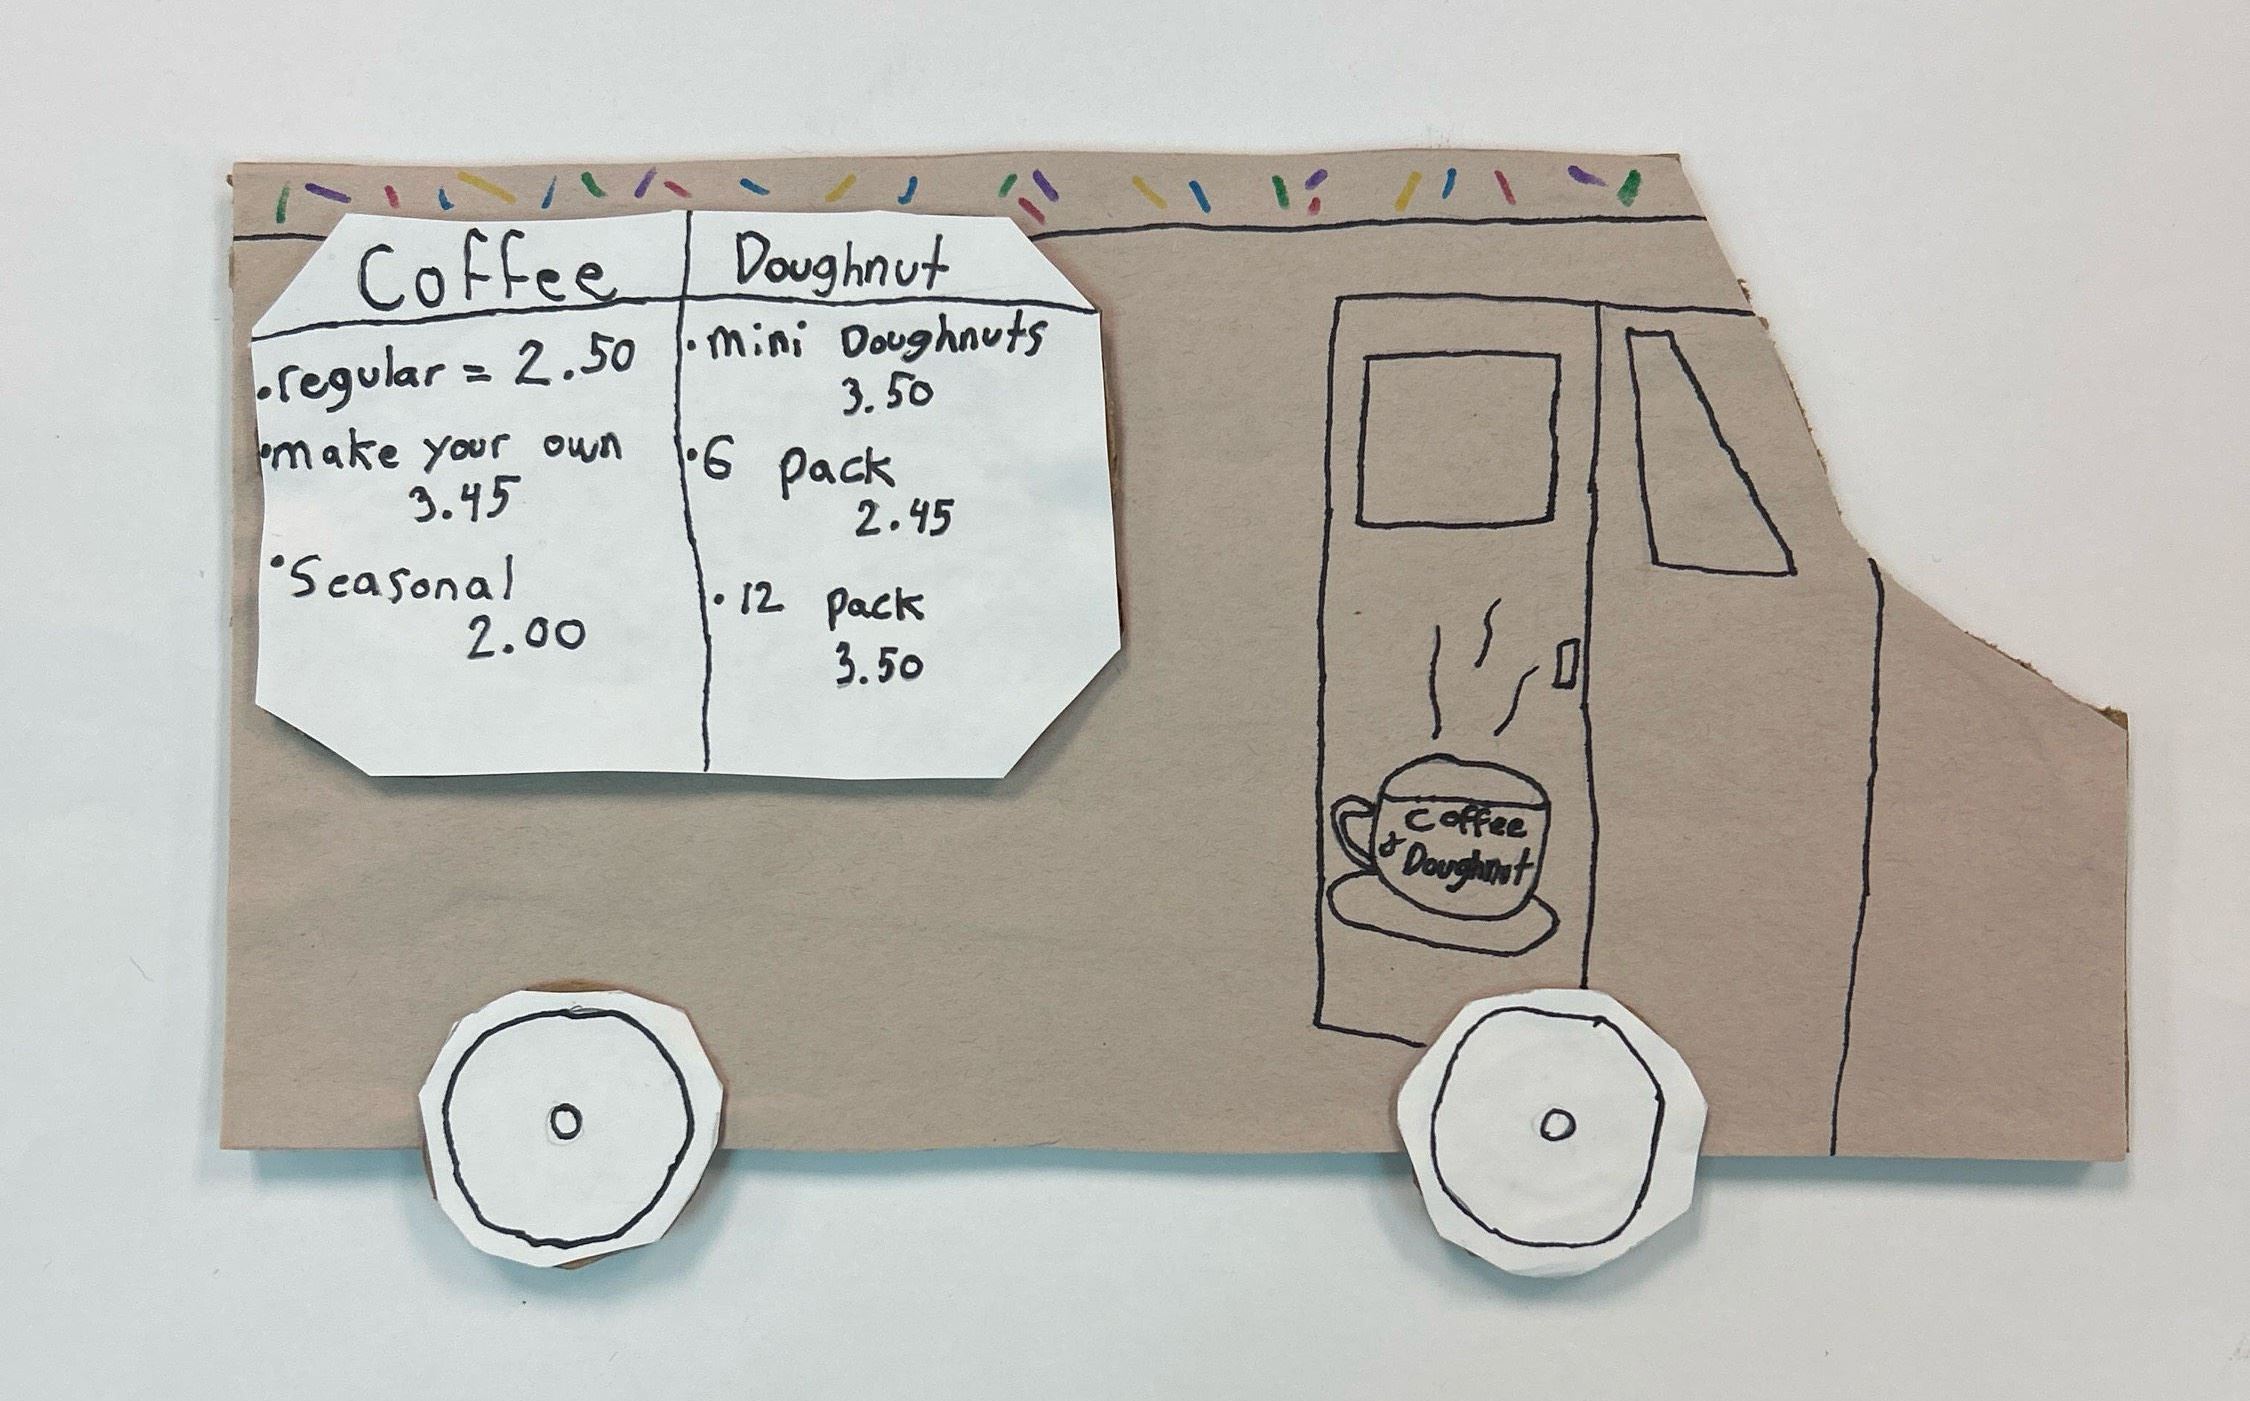 Coffee
.regular = 2.50
•make your own
3.45
•Seasonal
2.00
Doughnut
•mini Doughnuts
3.50
•6 pack
2.45
•12 pack
3.50
Coffee
& Doughnut